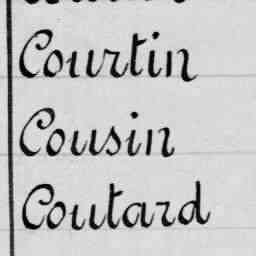 Courtin
Cousin
Coutard